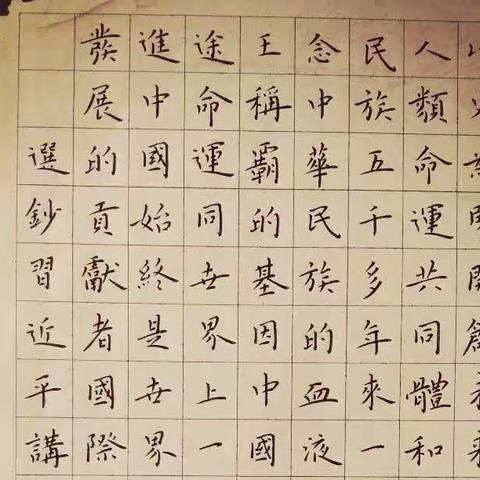 人類命運共同體和
民族五千多年來一
念中華民族的血液
王稱霸的基因中國
途命運同世界上一
進中國始終是世界
發展的貢獻者國際
選鈔習近平講